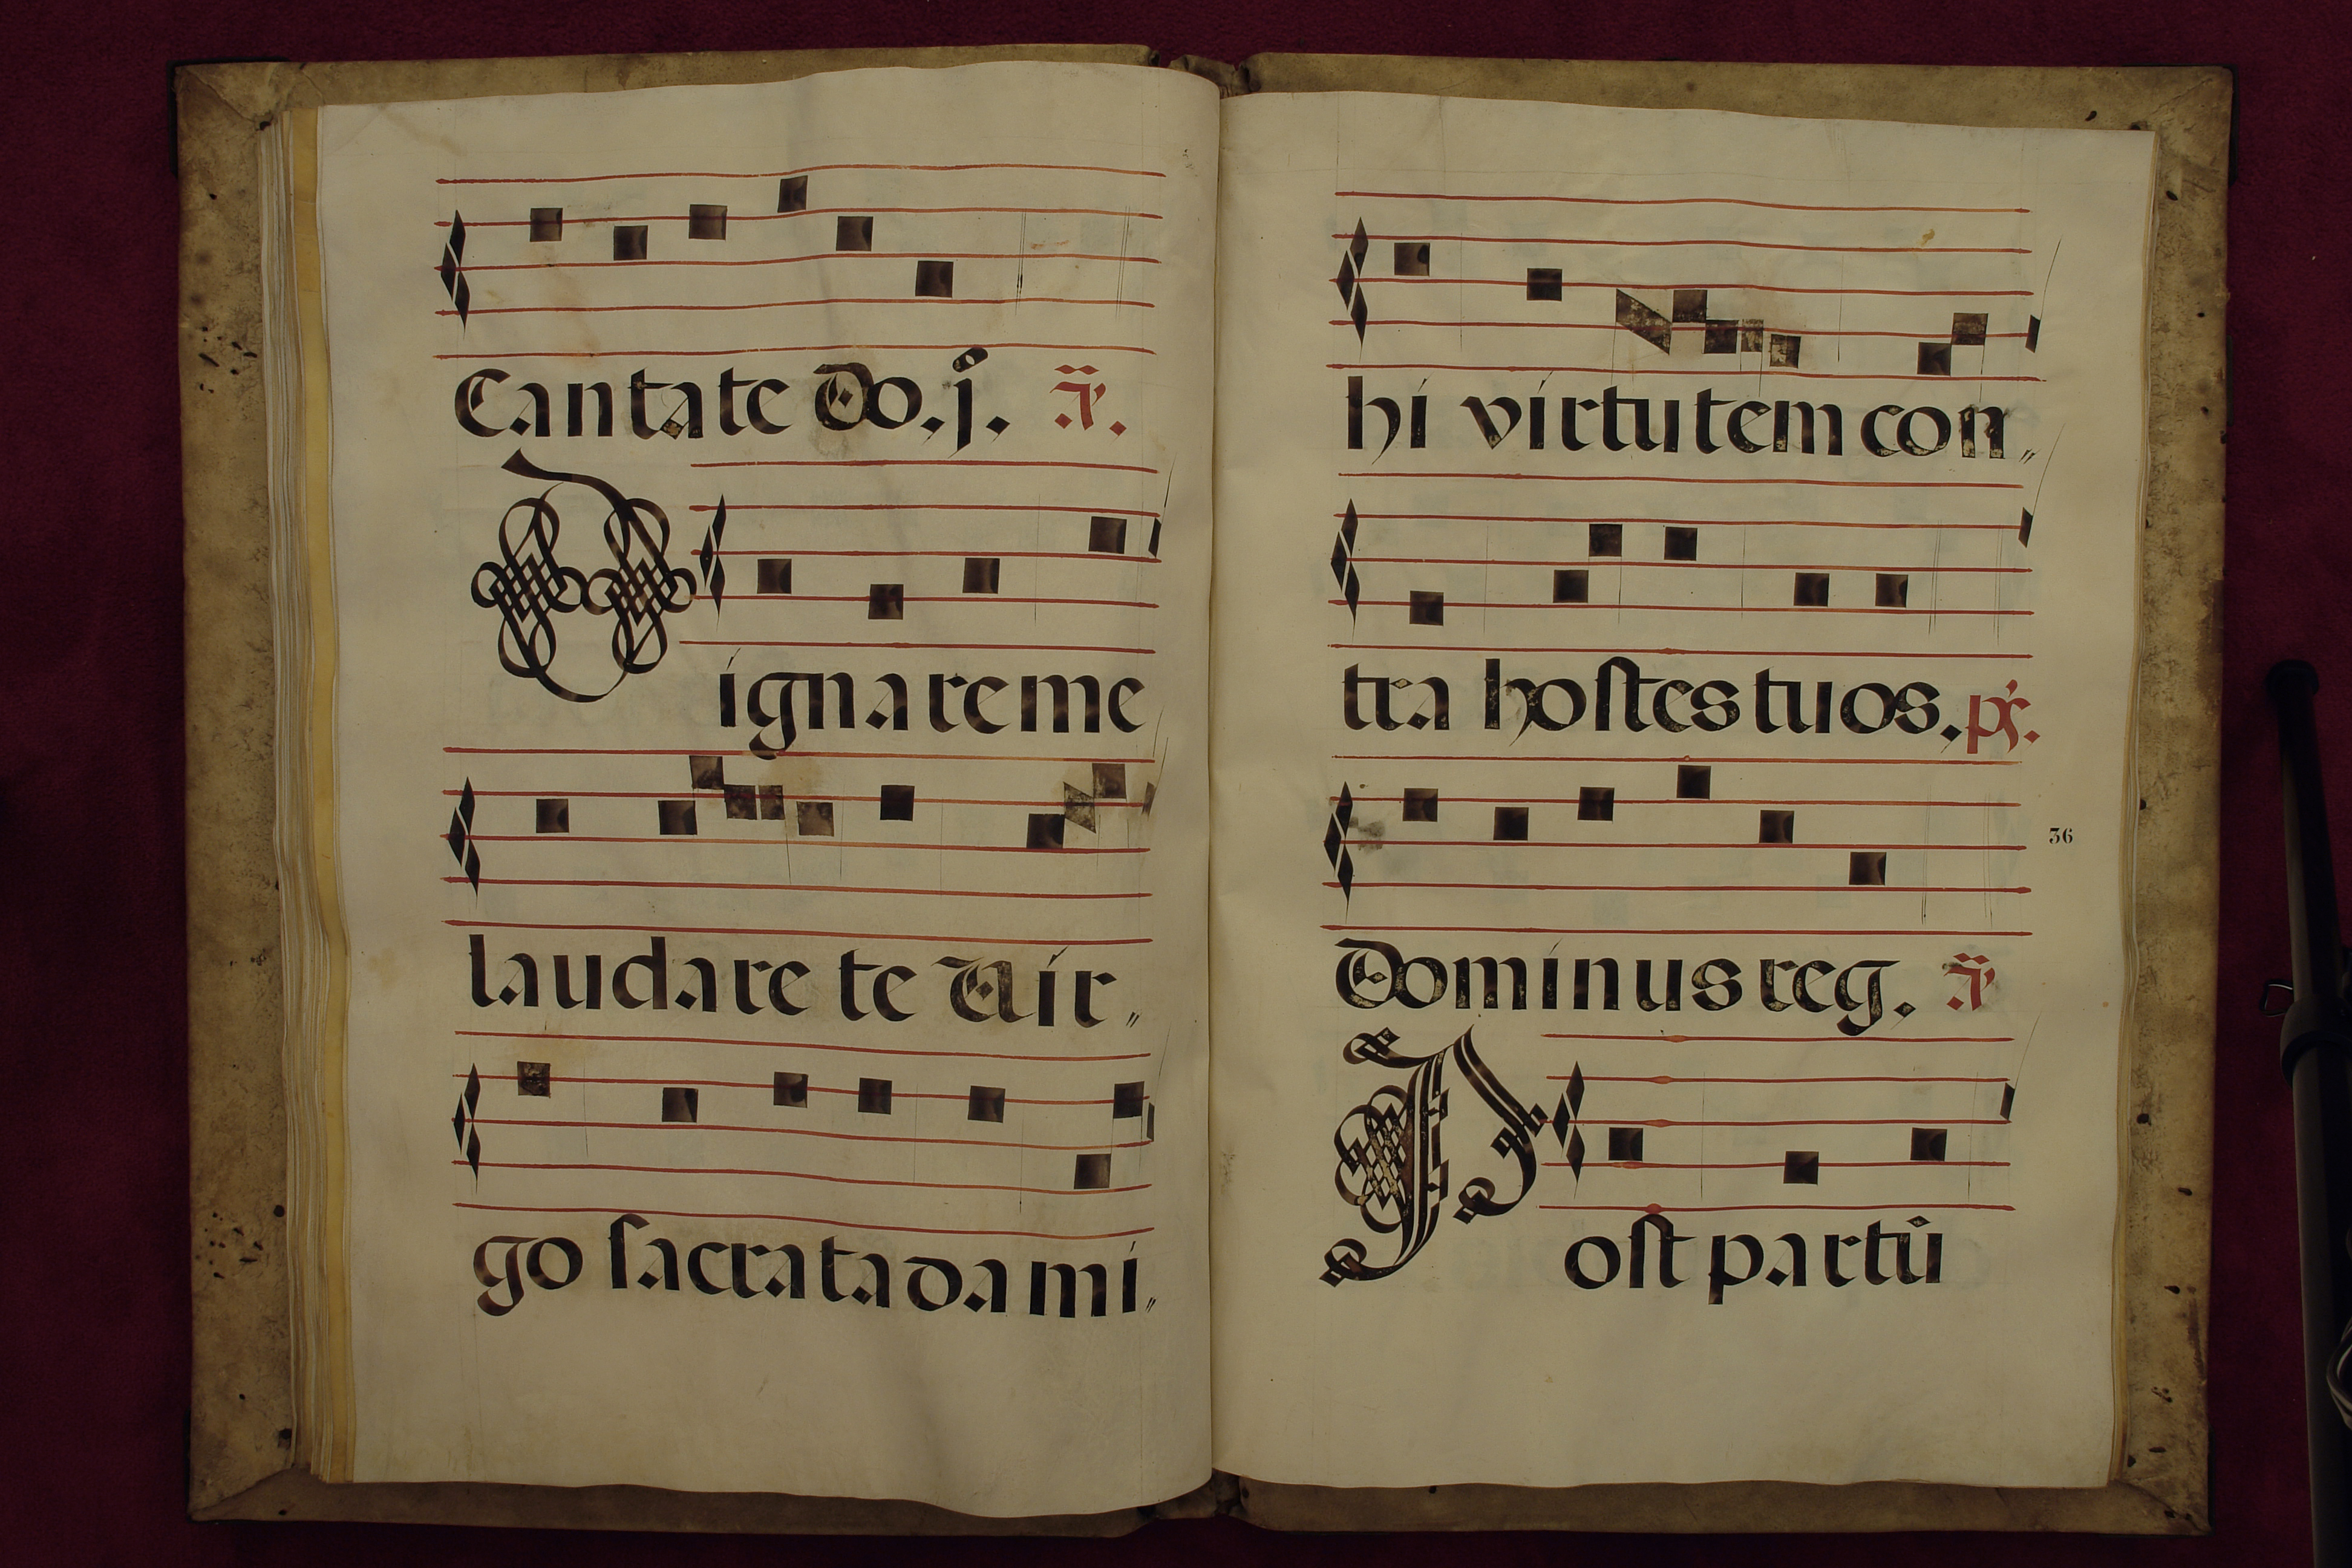 Cantate Do. j. ã.
Dignare me
laudare te Vir„
go sacrata da mi„
hi virtutem con„
tra hostes tuos. ps.
36
Dominus reg. ã
Post partū